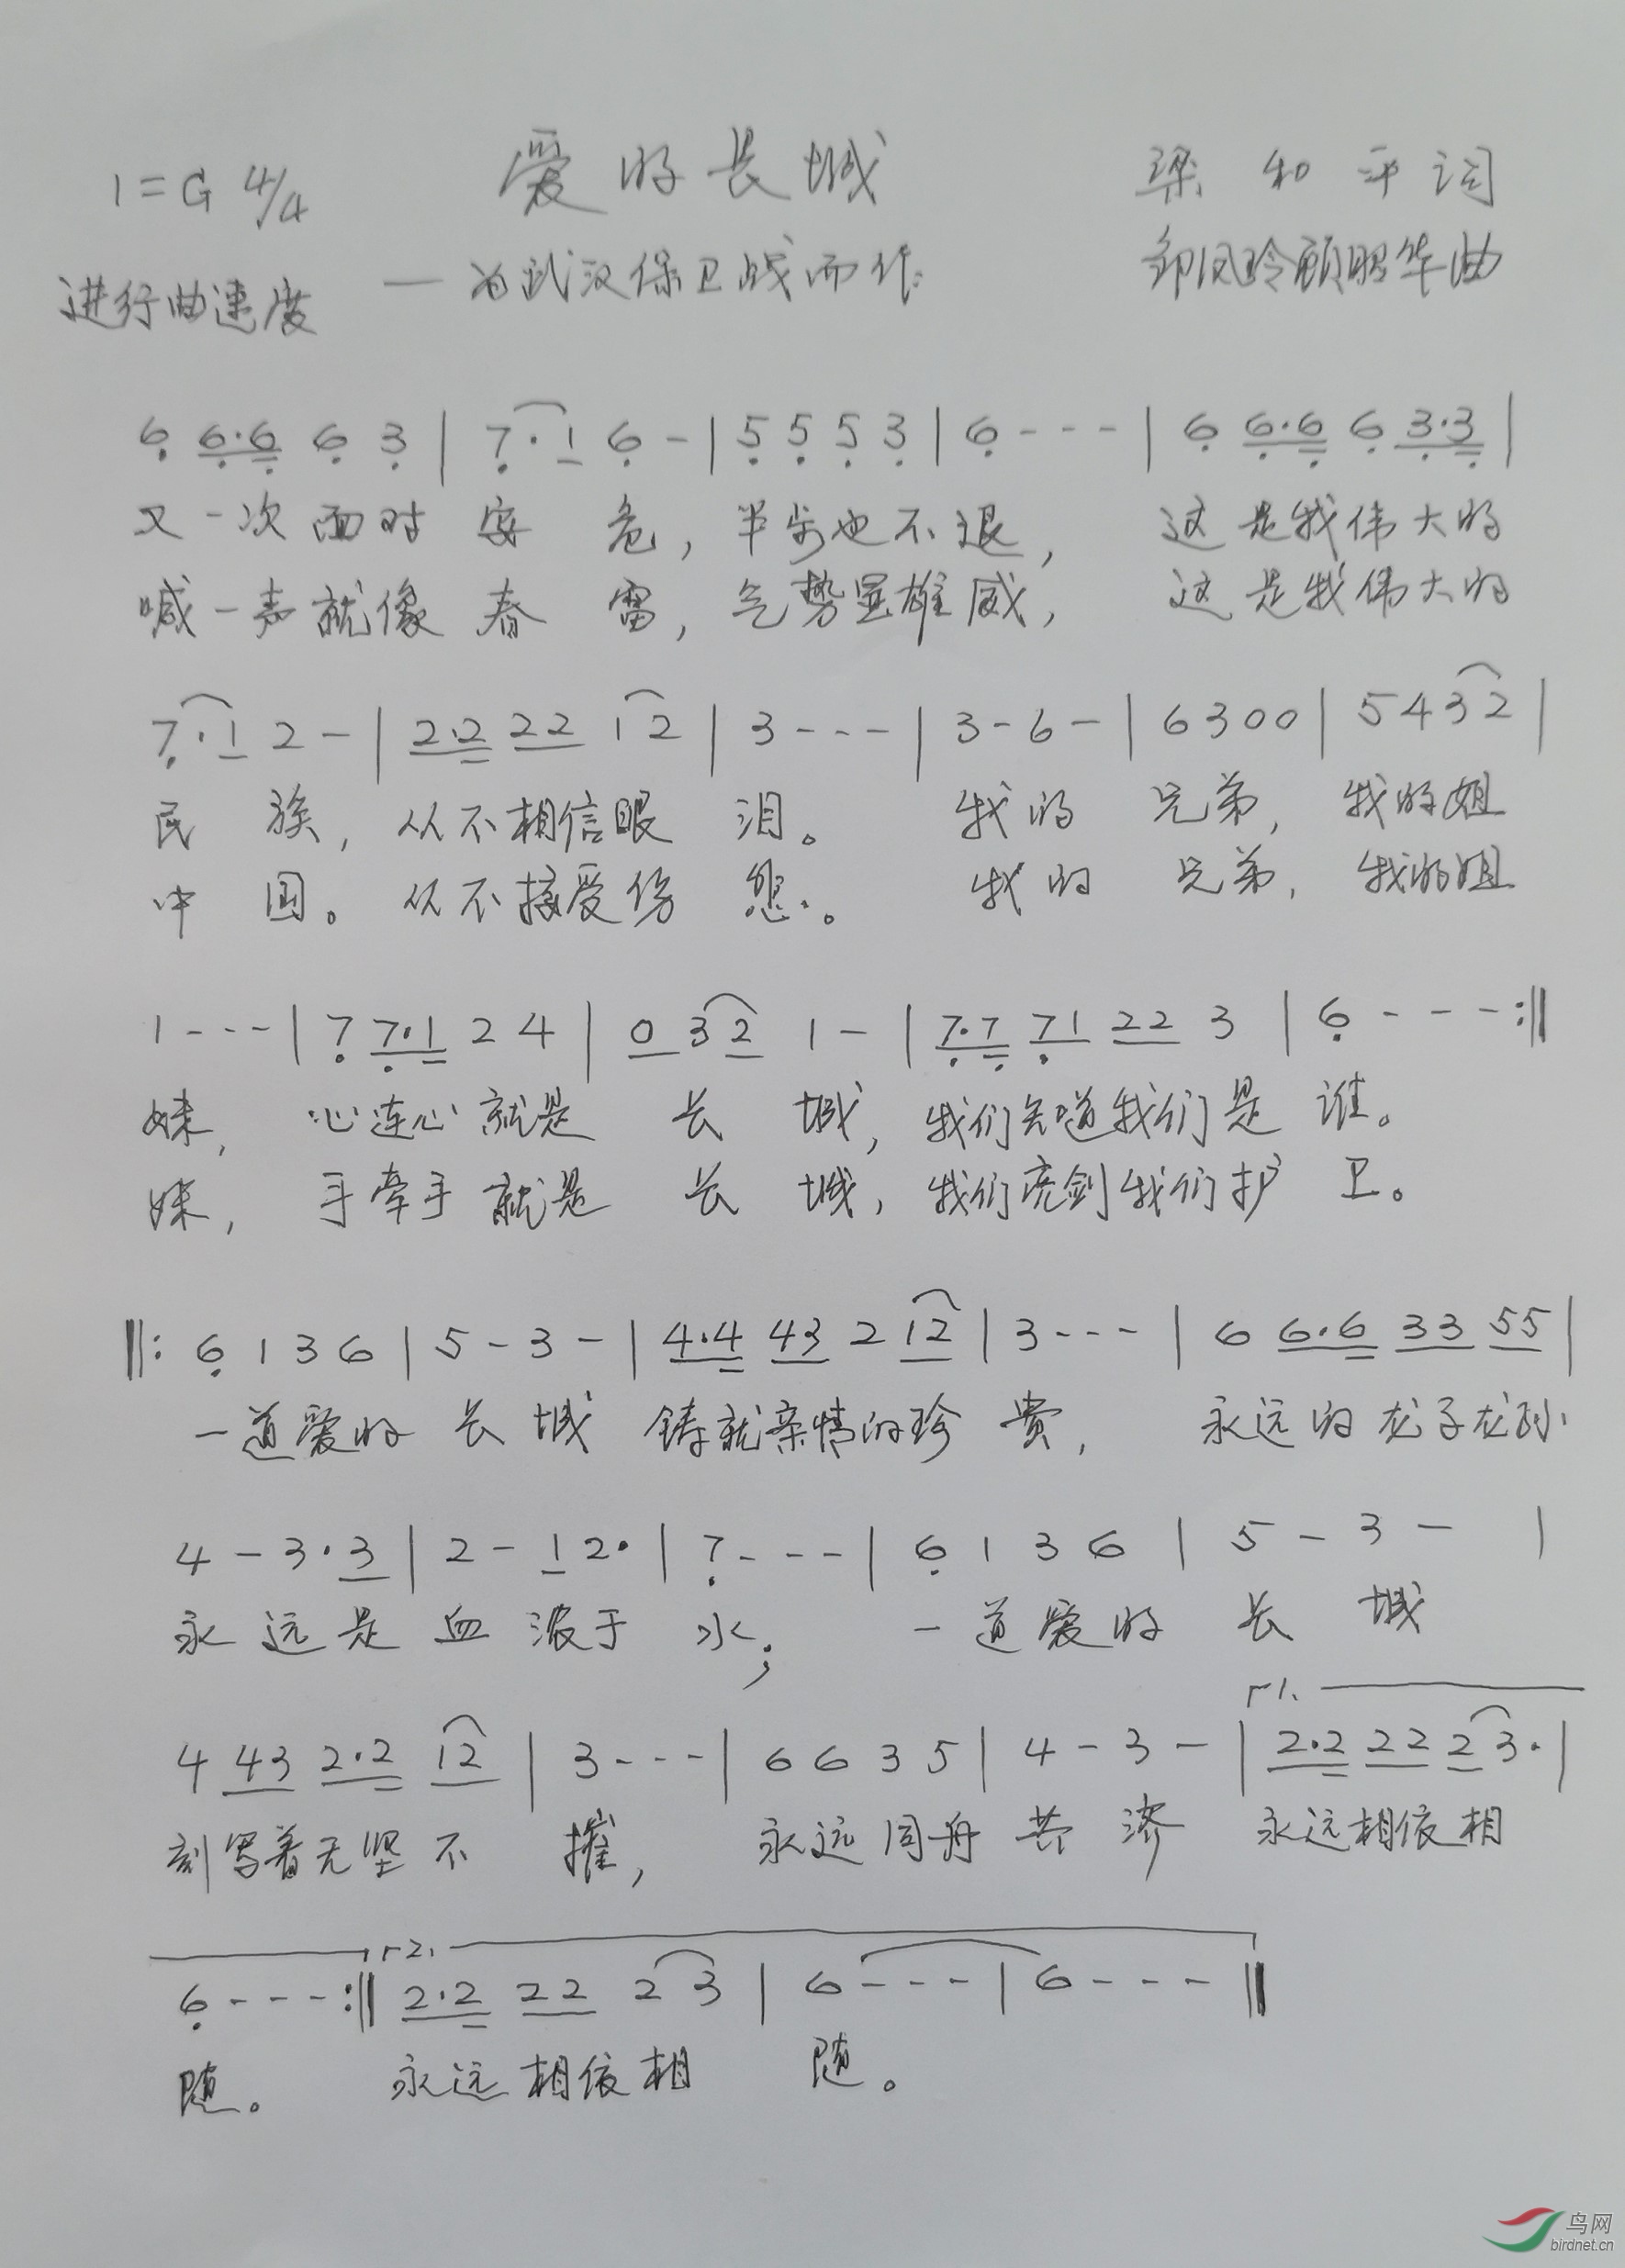 1=G 4/4 爱的长城 梁和平词
进行曲速度 —为武汉保卫战而作 邹凤玲顾昭华曲
6 6·6 6 3 | 7·1 6 - | 5 5 5 3 | 6 - - - | 6 6·6 6 3·3 |
又一次面对安危，半步也不退，这是我伟大的
喊一声就像春雷，气势显雄威，这是我伟大的
7·1 2 - | 2·2 22 12 | 3 - - - | 3 - 6 - | 6300 | 5432 |
民族，从不相信眼泪。我的兄弟，我的姐
中国。从不接受伤悲。我的兄弟，我的姐
1 - - - | 7 7·1 2 4 | 0 32 1 - | 7·7 71 22 3 | 6 - - - :||
妹，心连心就是长城，我们知道我们是谁。
妹，手牵手就是长城，我们亮剑我们护卫。
||: 6 1 3 6 | 5 - 3 - | 4·4 43 2 12 | 3 - - - | 6 6·6 33 55 |
一道爱的长城铸就亲情的珍贵，永远的龙子龙孙
4 - 3·3 | 2 - 12· | 7 - - - | 6 1 3 6 | 5 - 3 - |
永远是血浓于水；一道爱的长城
1.
4 43 2·2 12 | 3 - - - | 6 6 3 5 | 4 - 3 - | 2·2 22 23· |
刻写着无坚不摧，永远同舟共济永远相依相
2.
6 - - - :|| 2·2 22 2 3 | 6 - - - | 6 - - - ||
随。永远相依相随。
鸟网
birdnet.cn